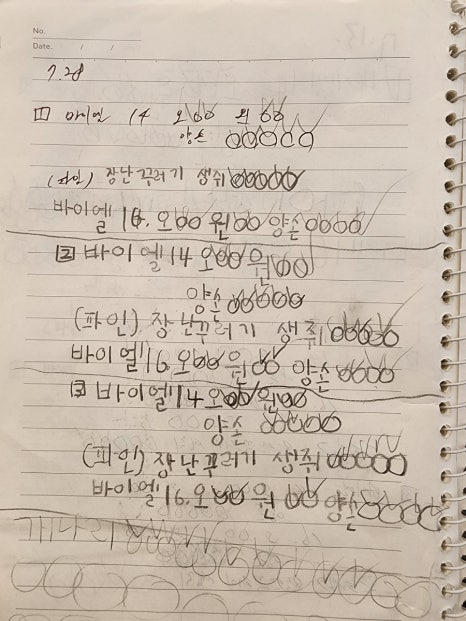 No.
Date. / /
7.28
1 바이엘 14 오00 왼00
양손 00000
(파인) 장난꾸러기 생쥐 00000
바이엘 16. 오00 왼00 양손 0000
2 바이엘 14 오00 왼00
양손 00000
(파인) 장난꾸러기 생쥐 00000
바이엘 16. 오00 왼00 양손 0000
3 바이엘 14 오00 왼00
양손 00000
(파인) 장난꾸러기 생쥐 00000
바이엘 16. 오00 왼00 양손 0000
개나리